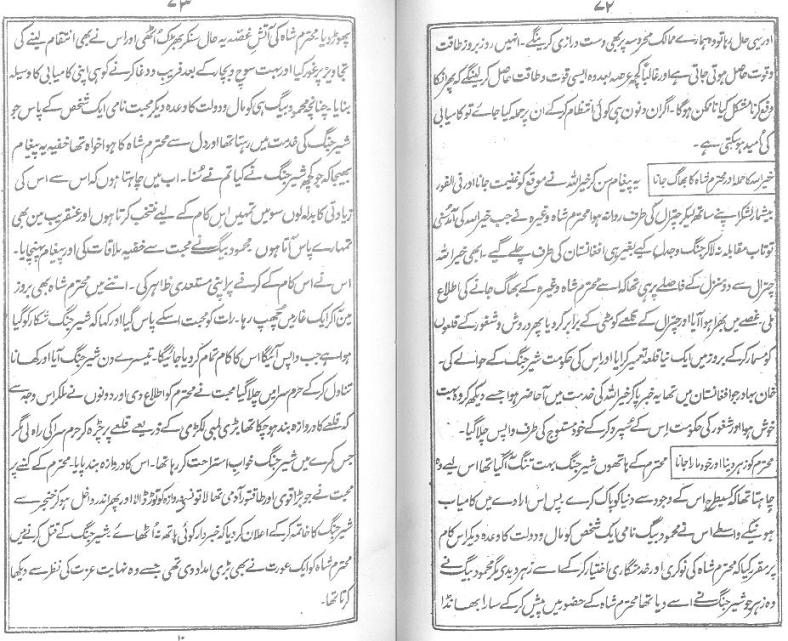 ۷۲
اور یہی حال رہا تو وہ ہمارے ممالک محروسہ پر بھی دست درازی کرینگے۔ انہیں روز بروز طاقت
و قوت حاصل ہوتی جاتی ہے اور غالباً کچھ عرصہ بعد وہ ایسی قوت و طاقت حاصل کر لینگے کہ پھر انکا
دفع کرنا مشکل کیا ناممکن ہوگا۔ اگر ان دنوں ہی کوئی انتظام کر کے ان پر حملہ کیا جائے تو کامیابی
کی امید ہو سکتی ہے۔
خیر اللہ کا حملہ اور محترم شاہ کا بھاگ جانا یہ پیغام سن کر خیر اللہ نے موقع کو غنیمت جانا اور فی الفور
بیشمار لشکر اپنے ساتھ لیکر چترال کی طرف روانہ ہوا محترم شاہ وغیرہ نے جب خیر اللہ کی آمد سنی
تو تاب مقابلہ نہ لا کر جنگ و جدل کیے بغیر ہی افغانستان کی طرف چلے گیے۔ ابھی خیر اللہ
چترال سے دو منزل کے فاصلے پر ہی تھا کہ اسے محترم شاہ وغیرہ کے بھاگ جانے کی اطلاع
ملی۔ غصے میں بھرا ہوا آیا اور چترال کے قلعے کو مٹی کے برابر کر دیا پھر دروش و شغور کے قلعوں
کو مسمار کر کے بروز میں ایک نیا قلعہ تعمیر کرایا اور اس کی حکومت شیر جنگ کے حوالے کی۔
خان بہادر جو افغانستان میں تھا یہ خبر پا کر خیر اللہ کی خدمت میں آ حاضر ہوا جسے دیکھ کر وہ بہت
خوش ہوا اور شغور کی حکومت اس کے سپرد کر کے خود مستوج کی طرف واپس چلا گیا۔
محترم کو زہر دینا اور خود مارا جانا محترم کے ہاتھوں شیر جنگ بہت تنگ آ گیا تھا اس لیے وہ
چاہتا تھا کہ کسیطرح اس کے وجود سے دنیا کو پاک کرے۔ پس اس ارادے میں کامیاب
ہونیکے واسطے اس نے محمود بیگ نامی ایک شخص کو مال و دولت کا وعدہ دیکر اس کام
پر مقرر کیا کہ محترم شاہ کی نوکری اور خدمتگاری اختیار کر کے اسے زہر دیدی مگر محمود بیگ نے
وہ زہر جو شیر جنگ نے اسے دیا تھا محترم شاہ کے حضور میں پیش کر کے سارا بھانڈا
۷۳
پھوڑ دیا۔ محترم شاہ کی آتش غصہ یہ حال سنکر بھڑک اٹھی اور اس نے بھی انتقام لینے کی
تجاویز پر غور کیا اور بہت سوچ و بچار کے بعد فریب و دغا کرنے کو ہی اپنی کامیابی کا وسیلہ
بنایا۔ چنانچہ محمود بیگ ہی کو مال و دولت کا وعدہ دیکر محبت نامی ایک شخص کے پاس جو
شیر جنگ کی خدمت میں رہتا تھا اور دل سے محترم شاہ کا ہوا خواہ تھا خفیہ یہ پیغام
بھیجا کہ جو کچھ شیر جنگ نے کیا تم نے سنا۔ اب میں چاہتا ہوں کہ اس سے اس کی
زیادتی کا بدلہ لوں سو میں تمہیں اس کام کے لیے منتخب کرتا ہوں اور عنقریب میں بھی
تمہارے پاس آتا ہوں محمود بیگ نے محبت سے خفیہ ملاقات کی اور پیغام پہنچایا۔
اس نے اس کام کے کرنے پر اپنی مستعدی ظاہر کی۔ اتنے میں محترم شاہ بھی بروز
میں آ کر ایک غار میں چھپ رہا۔ رات کو محبت اسکے پاس گیا اور کہا کہ شیر جنگ شکار کو گیا
ہوا ہے جب واپس آئیگا اس کا کام تمام کر دیا جائیگا۔ تیسرے دن شیر جنگ آیا اور کھانا
تناول کر کے حرم سرا میں چلا گیا محبت نے محترم کو اطلاع دی اور دونوں نے ملکر اس وجہ سے
کہ قلعے کا دروازہ بند ہو چکا تھا بڑی لمبی لکڑی کے ذریعے قلعے پر چڑھ کر حرم سرا کی راہ لی مگر
جس کمرے میں شیر جنگ خواب استراحت کر رہا تھا۔ اس کا دروازہ بند پایا۔ محترم کے کہنے پر
محبت نے جو بڑا قوی اور طاقتور آدمی تھا لاتوں سے دروازہ کو توڑ ڈالا اور پھر اندر داخل ہو کر خنجر سے
شیر جنگ کا خاتمہ کر کے اعلان کر دیا کہ خبردار کوئی ہاتھ نہ اٹھائے شیر جنگ کے قتل کرنے میں
محترم شاہ کو ایک عورت نے بھی بڑی امداد دی تھی جسے وہ نہایت عزت کی نظر سے دیکھا
کرتا تھا۔
۱۰